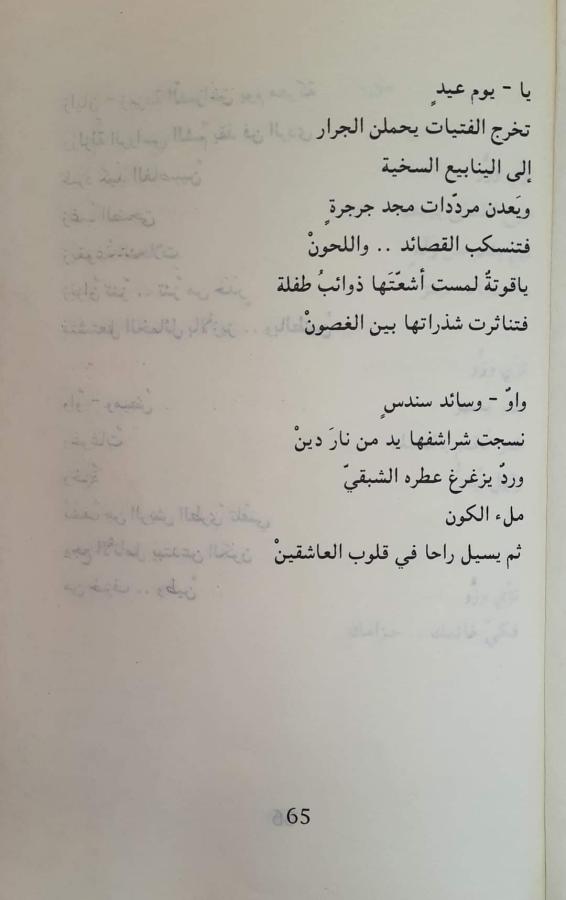 يا - يوم عيدٍ
تخرج الفتيات يحملن الجرار
إلى الينابيع السخية
ويَعدن مردّدات مجد جرجرةٍ
فتنسكب القصائد .. واللحونْ
ياقوتةٌ لمست أشعّتَها ذوائبُ طفلة
فتناثرت شذراتها بين الغصونْ
واوٌ - وسائد سندسٍ
نسجت شراشفها يد من نارَ دينْ
وردٌ يزغرغ عطره الشبقيّ
ملء الكون
ثم يسيل راحا في قلوب العاشقينْ
65